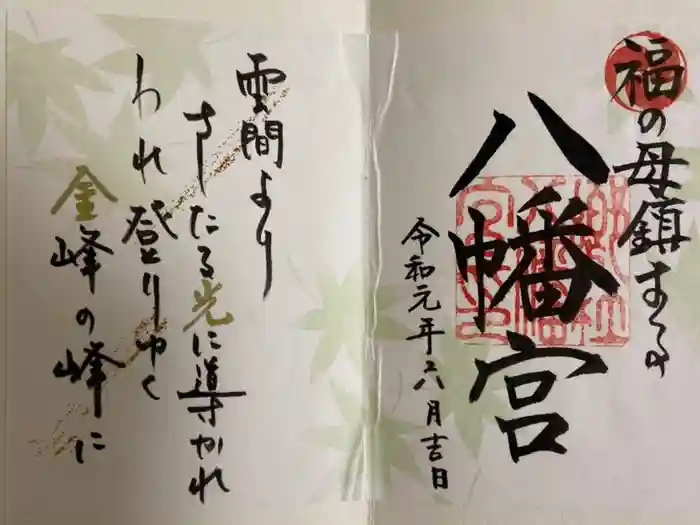 福の母鎮まるの
八幡宮
令和元年八月吉日
雲間より
さしたる光に導かれ
われ登りゆく
金峰の峰に